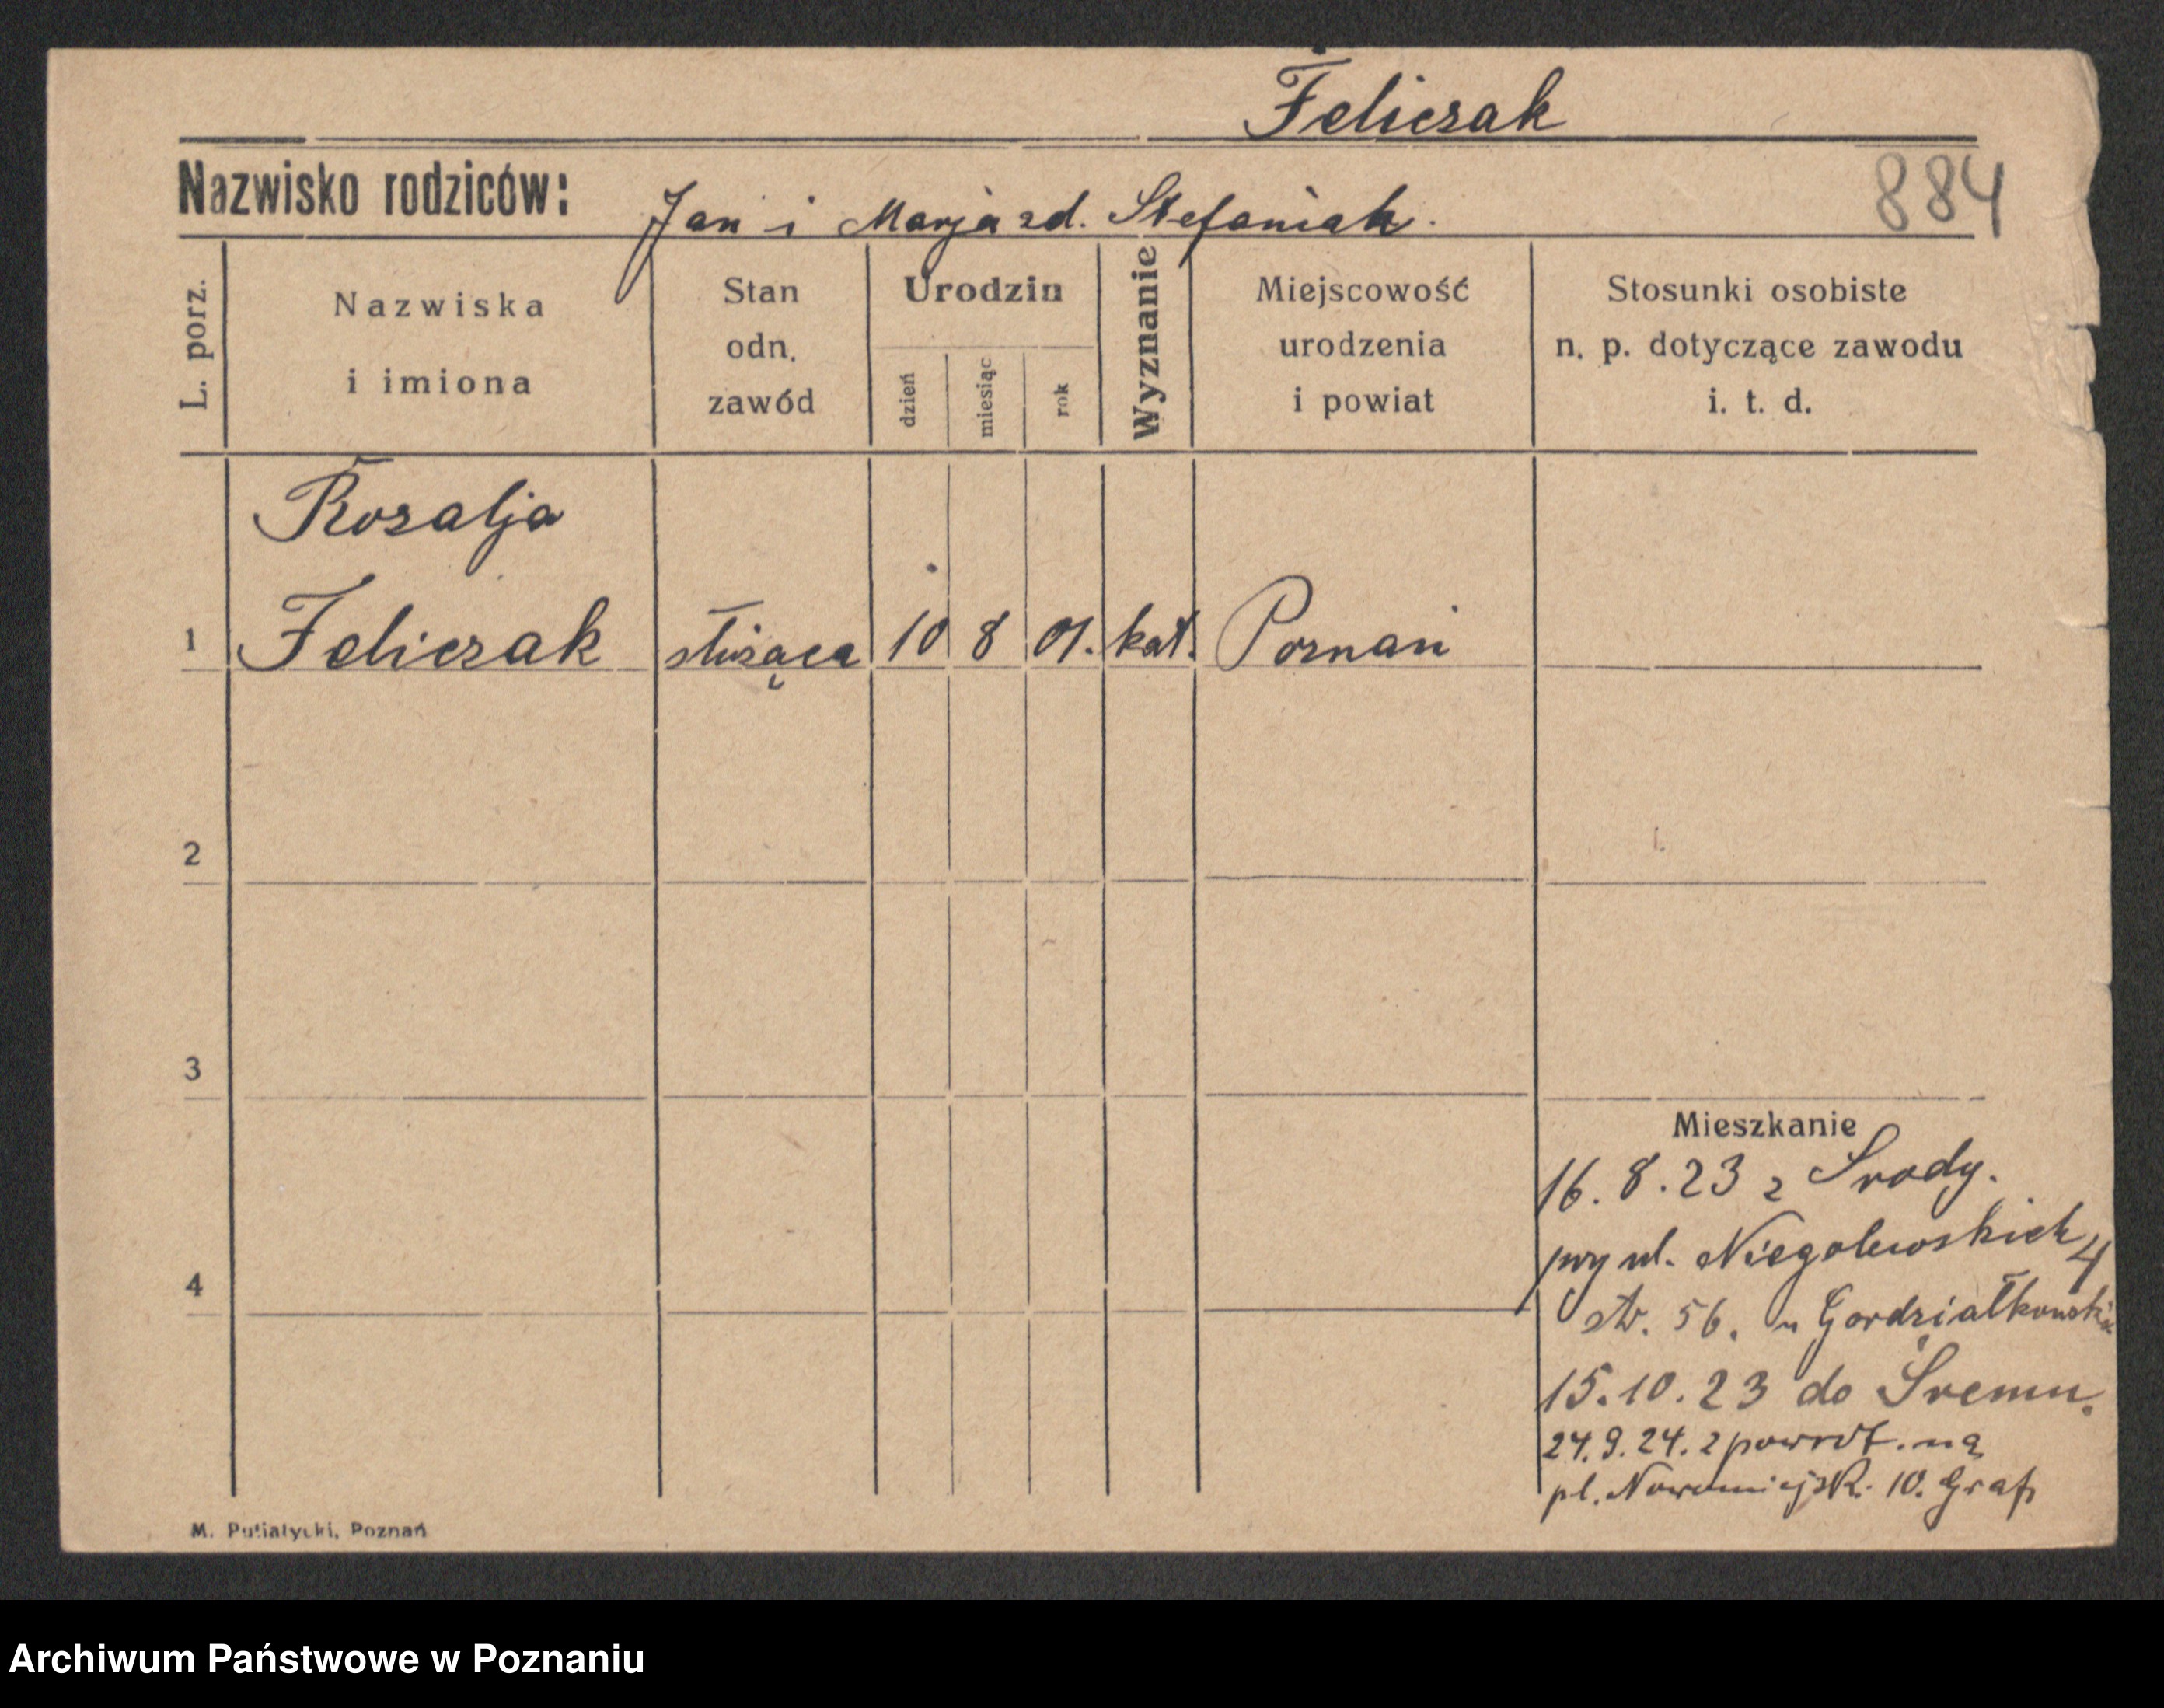 Feliczak
Nazwisko rodziców: Jan i Marja zd. Stefaniak.
884
L. porz.
Nazwiska
i imiona
Stan
odn.
zawód
Urodzin
dzień
miesiąc
rok
Wyznanie
Miejscowość
urodzenia
i powiat
Stosunki osobiste
n. p. dotyczące zawodu
i. t. d.
Rozalja
1 Feliczak służąca 10 8 01. kat. Poznań
2
3
4
Mieszkanie
16.8.23 z Środy.
przy ul. Niegolewskich 4
str. 56. u
15.10.23 do Śremu.
24.9.24. z powrot. na
pl. Nowomiejsk. 10. Graf
M. Putiatycki, Poznań
Archiwum Państwowe w Poznaniu